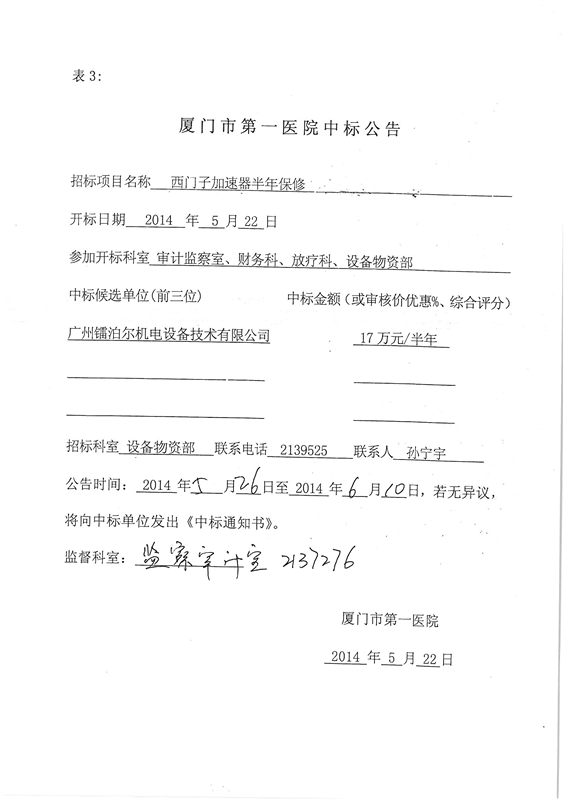 表 3:
厦门市第一医院中标公告
招标项目名称 西门子加速器半年保修
开标日期 2014 年 5 月 22 日
参加开标科室 审计监察室、财务科、放疗科、设备物资部
中标候选单位(前三位) 中标金额(或审核价优惠%、综合评分)
广州镭泊尔机电设备技术有限公司 17 万元/半年
招标科室 设备物资部 联系电话 2139525 联系人 孙宁宇
公告时间: 2014 年 5 月 26 日至 2014 年 6 月 10 日，若无异议，
将向中标单位发出《中标通知书》。
监督科室: 监察审计室 2137276
厦门市第一医院
2014 年 5 月 22 日